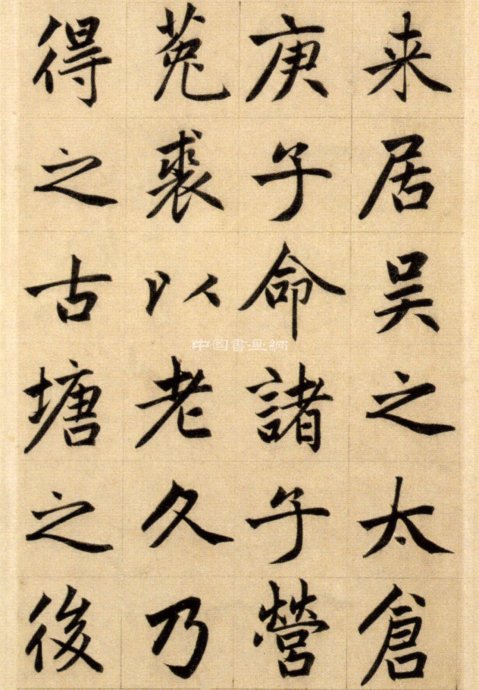 来居吴之太倉
庚子命諸子營
菟裘以老久乃
得之古塘之後
中国書画網